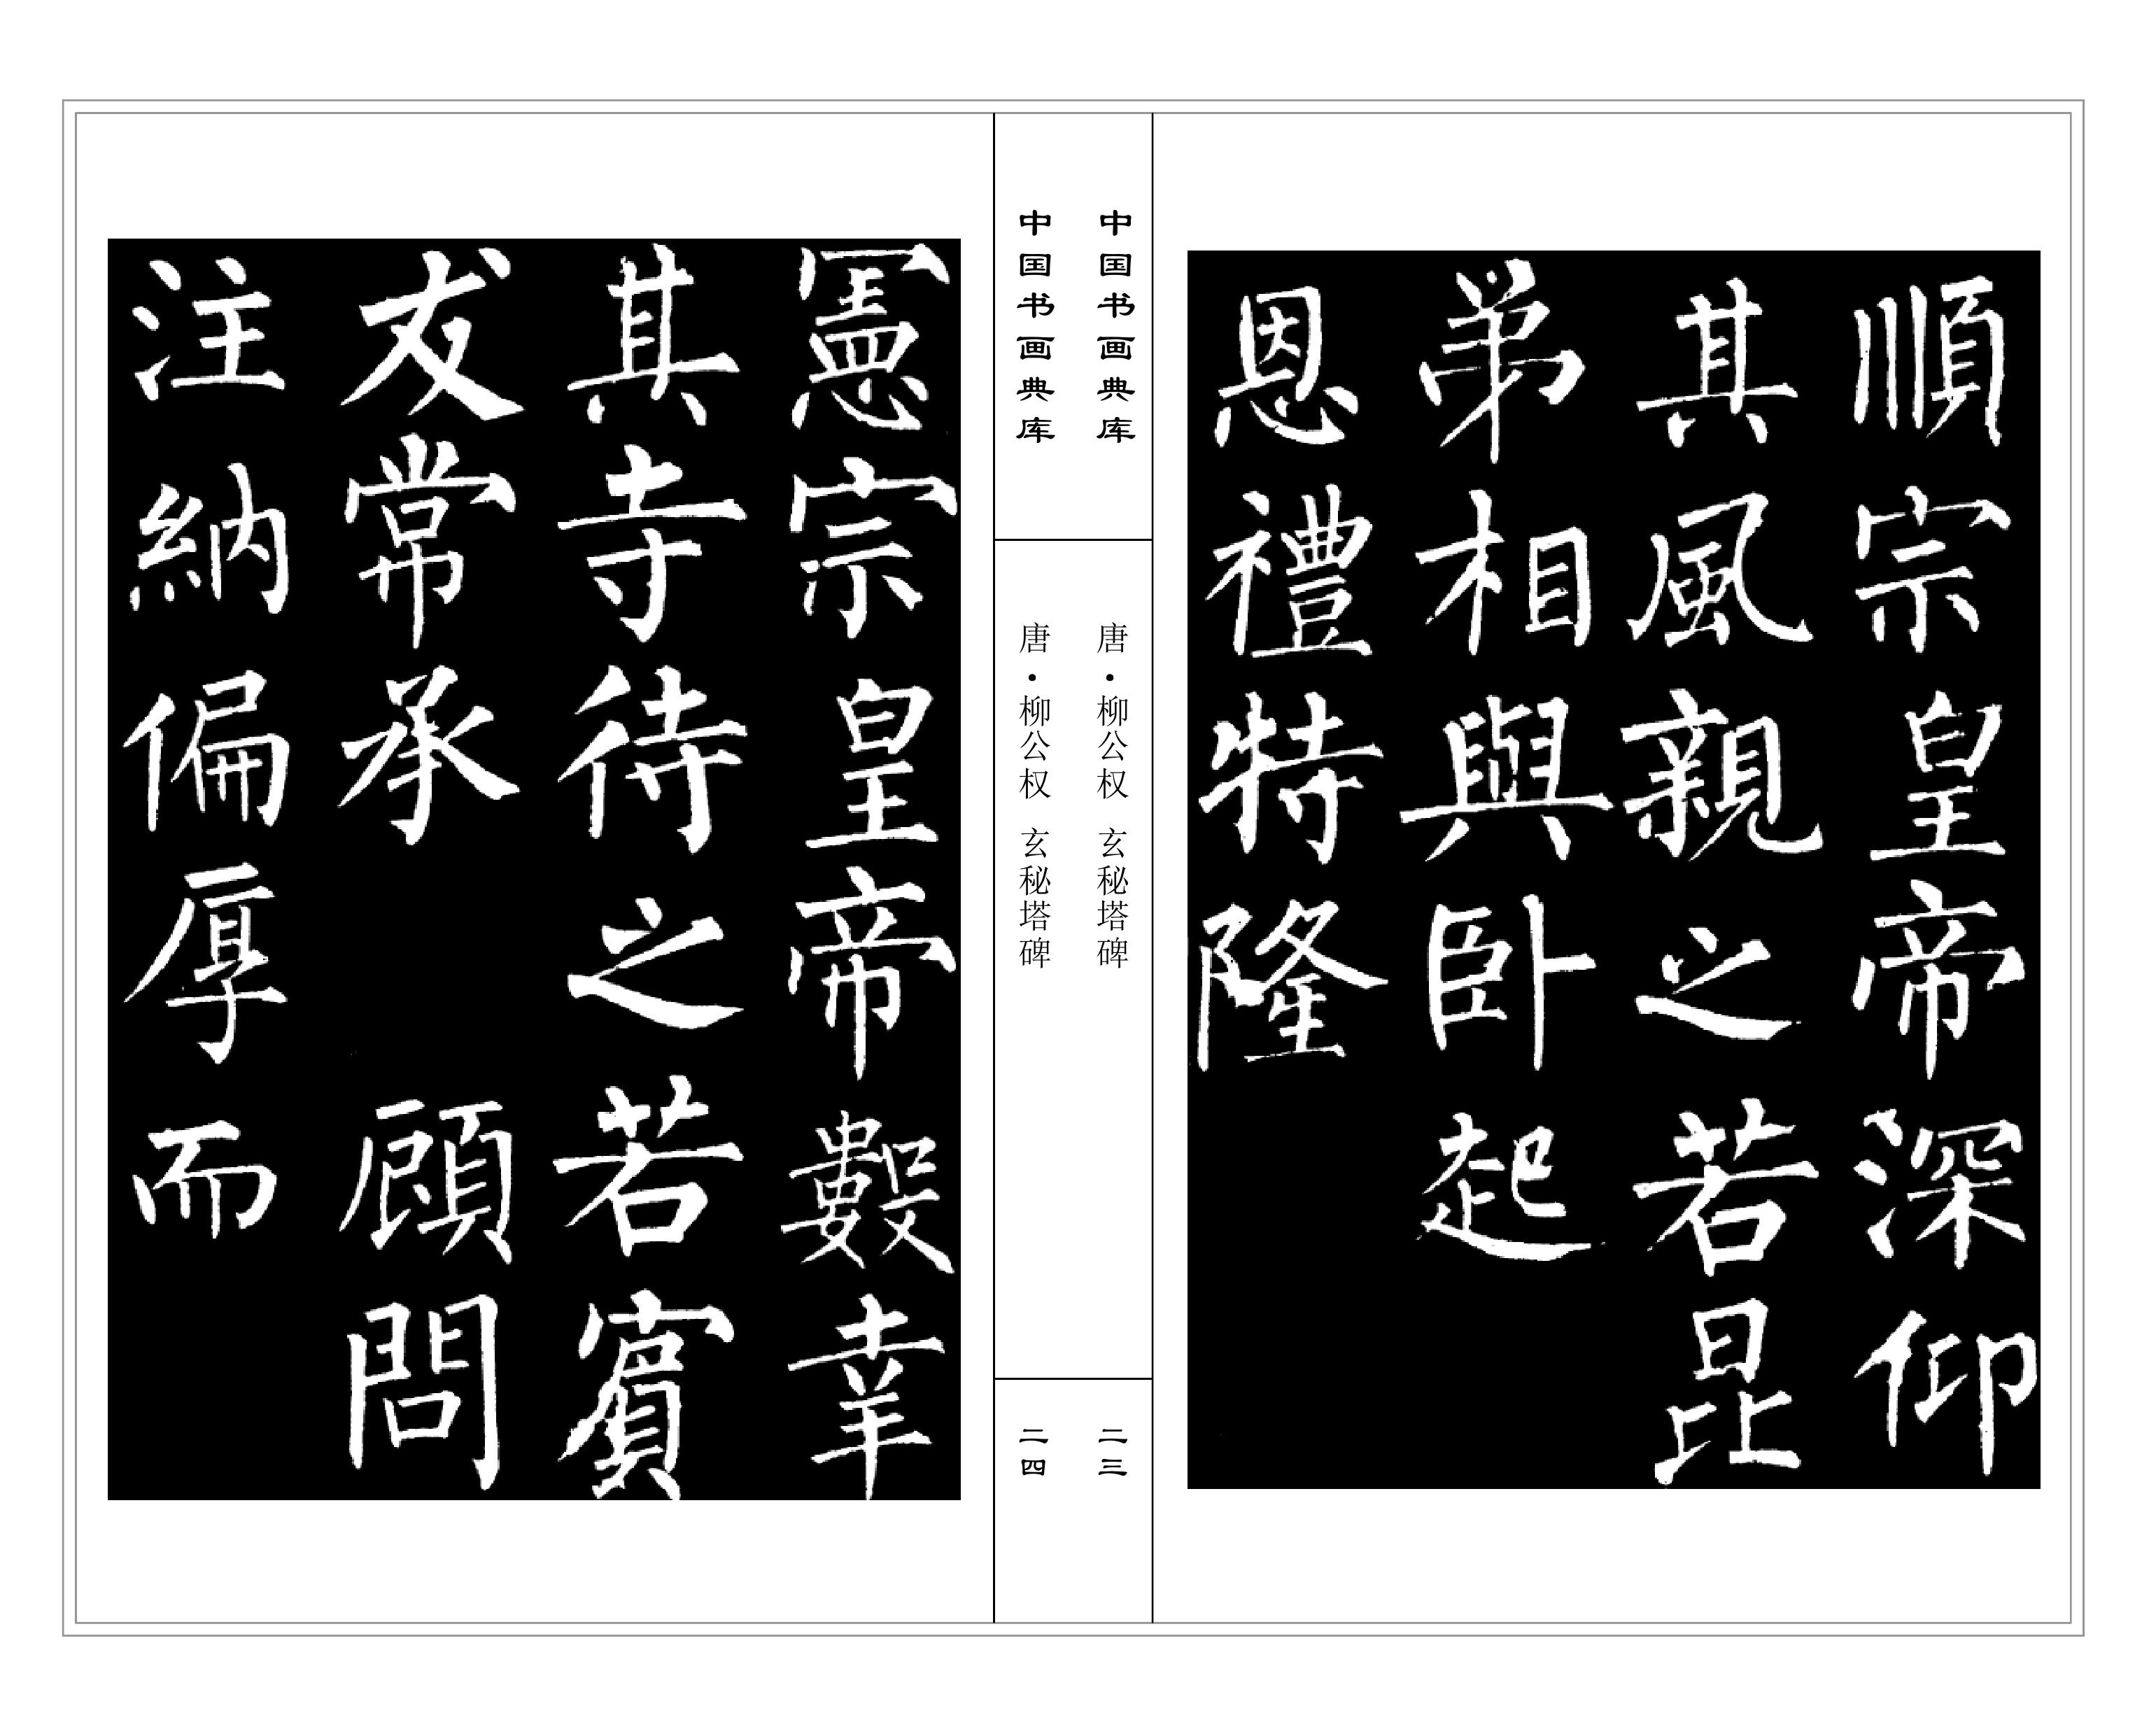 順宗皇帝深仰
其風親之若昆
弟相與卧起
恩禮特隆
中国书画典库
唐·柳公权 玄秘塔碑
二三
中国书画典库
唐·柳公权 玄秘塔碑
二四
憲宗皇帝數幸
其寺待之若賓
友常承 顧問
注納偏厚而